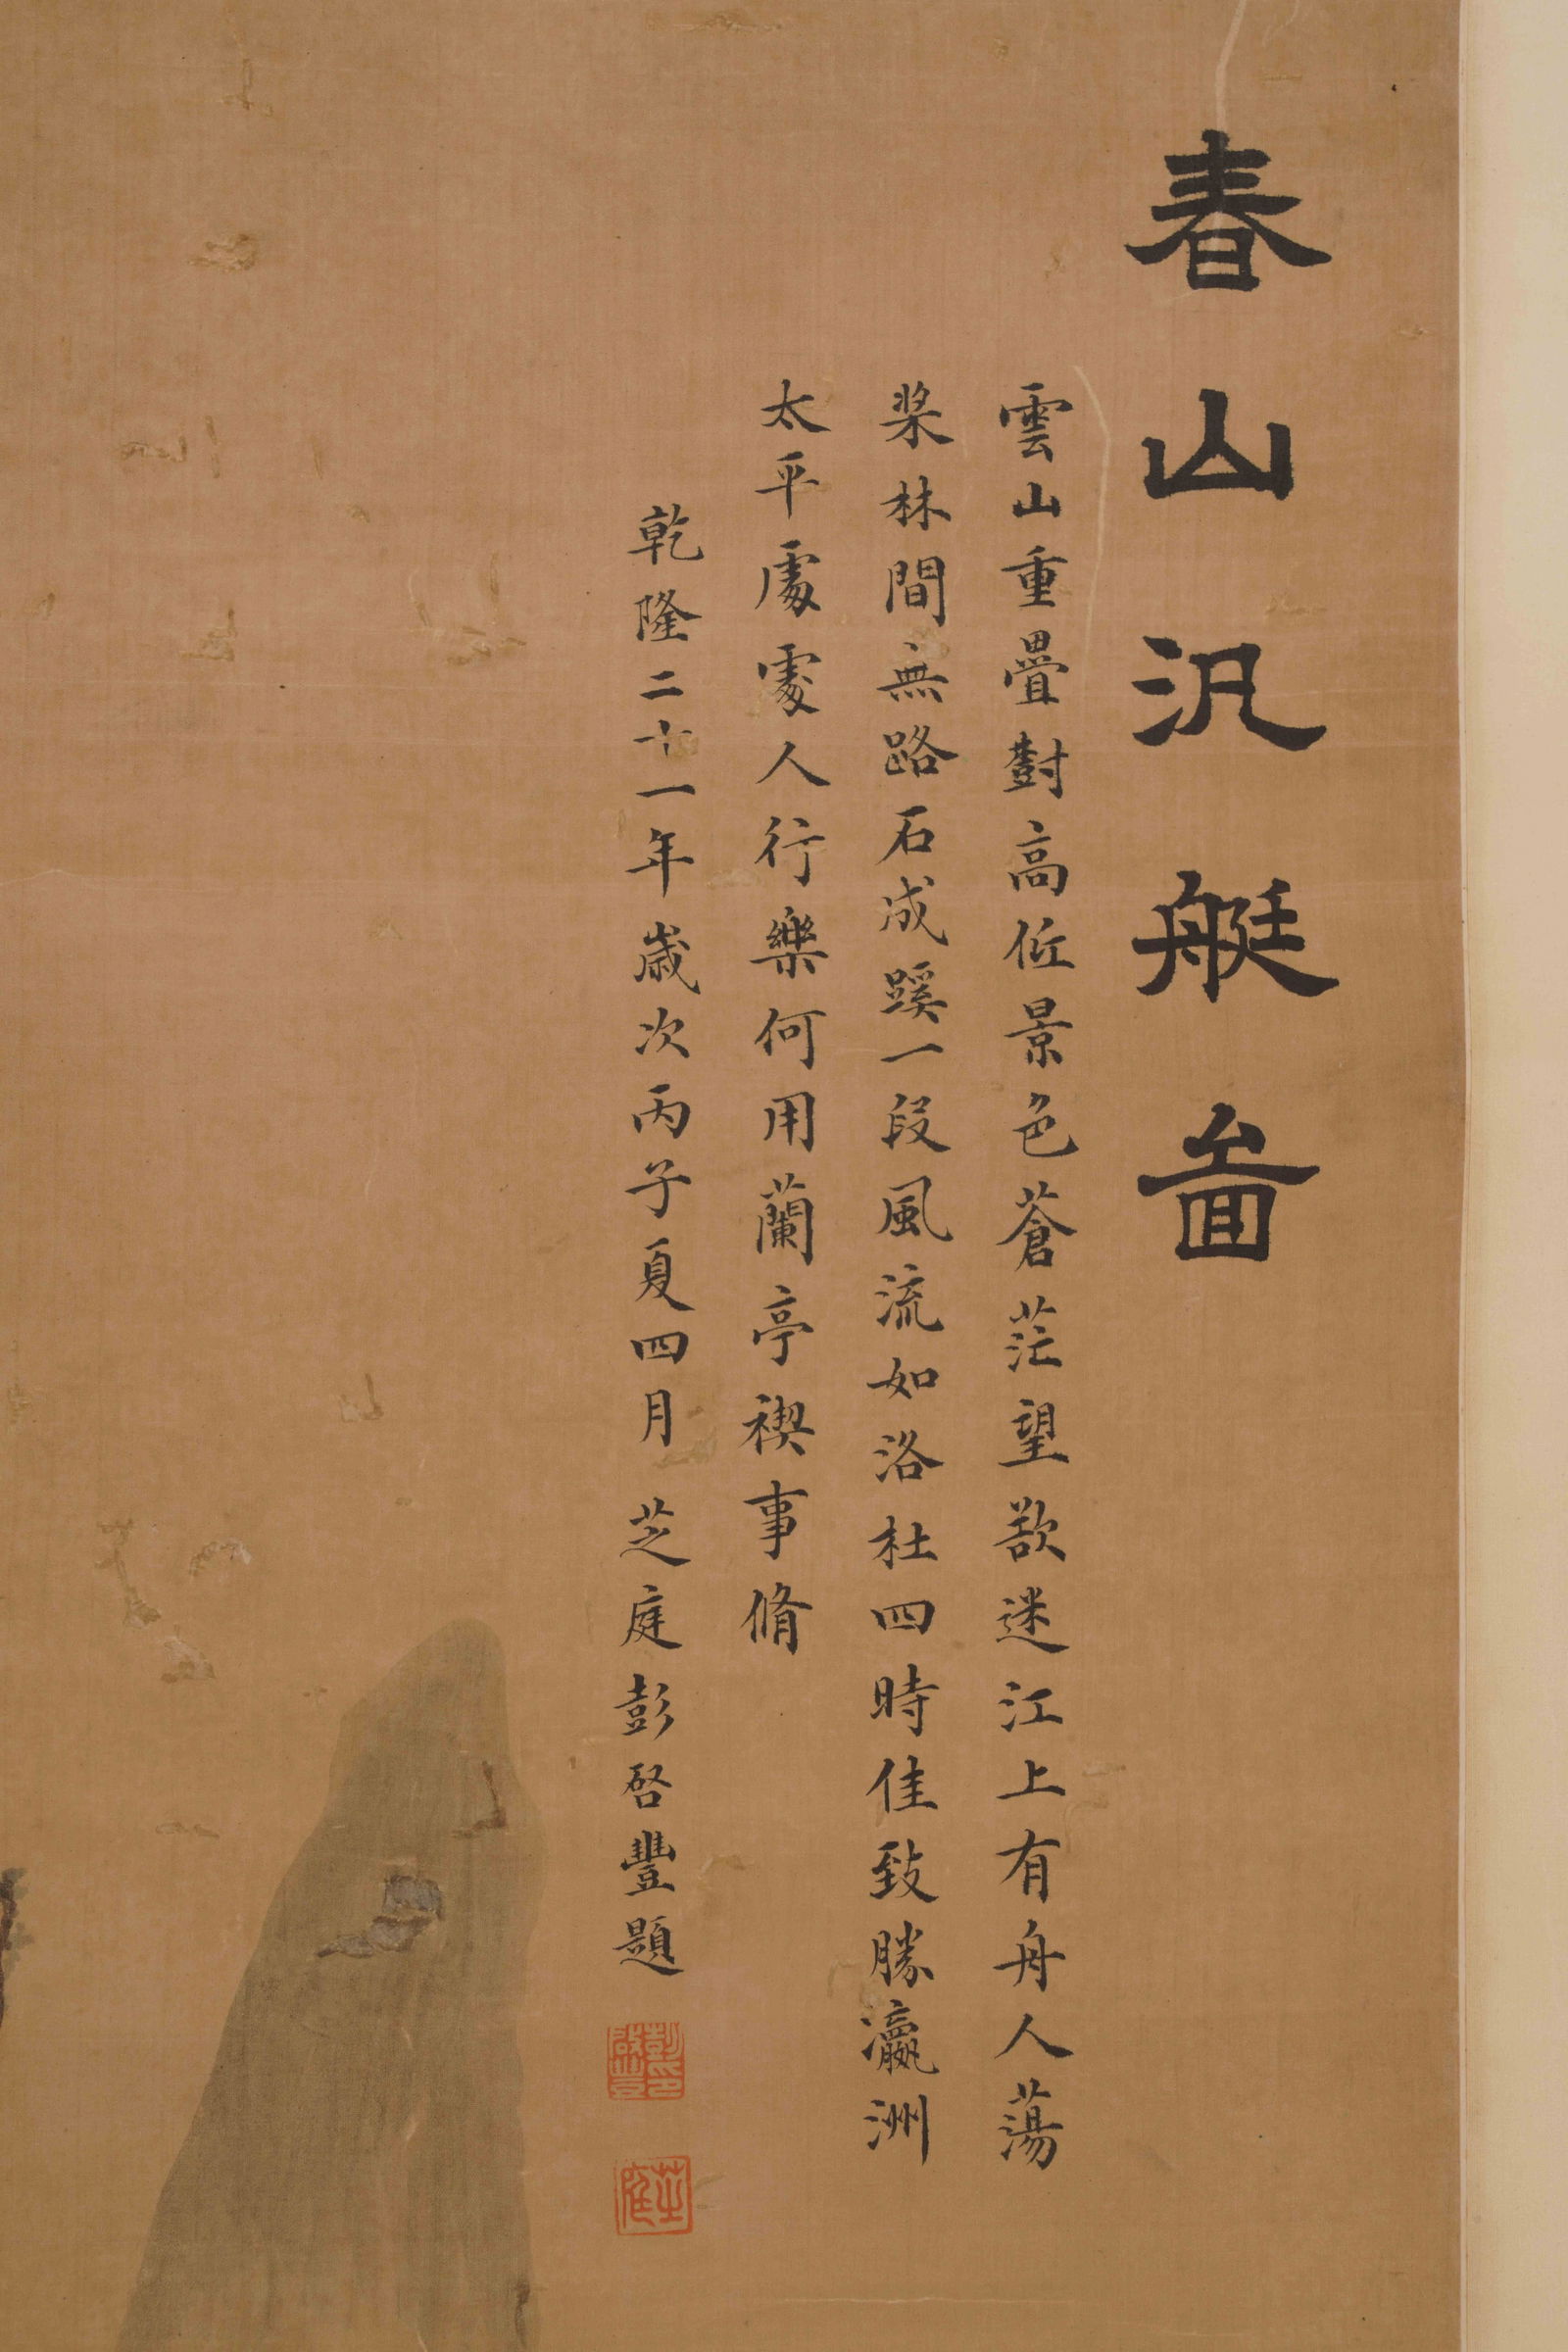 春山汎艇啚
雲山重疊對高低景色蒼茫望欲迷江上有舟人蕩
槳林間無路石成蹊一段風流如洛杜四時佳致勝瀛洲
太平處處人行樂何用蘭亭禊事脩
乾隆二十一年歲次丙子夏四月 芝庭彭啓豐題
彭啟豐印
芝庭